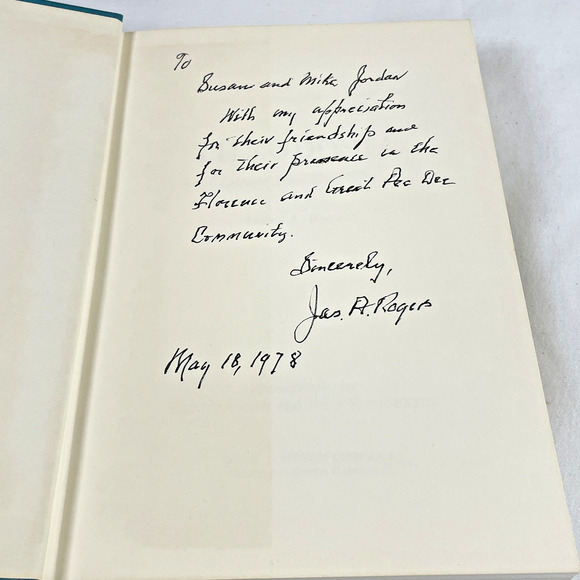 To
Susan and Mike Jordan
With my appreciation
for their friendship and
for their presence in the
Florence and Great Pee Dee
Community.
Sincerely,
Jas. A. Rogers
May 18, 1978